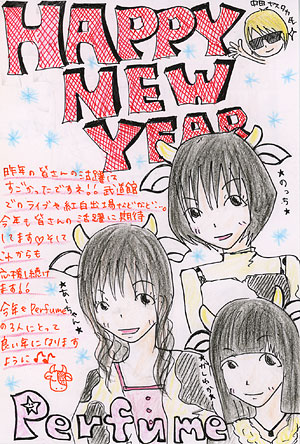 HAPPY
NEW
YEAR
中田ヤスタカ氏
昨年の皆さんの活躍って
すごかったですネ!!武道館
でのライブや紅白出場などなど…。
今年も皆さんの活躍に期待
してます♡そして
これからも
応援し続け
ます!!
今年もPerfume
の3人にとって
良い年になります
ように
★のっち★
★あ〜ちゃん★
★かしゆか★
Perfume